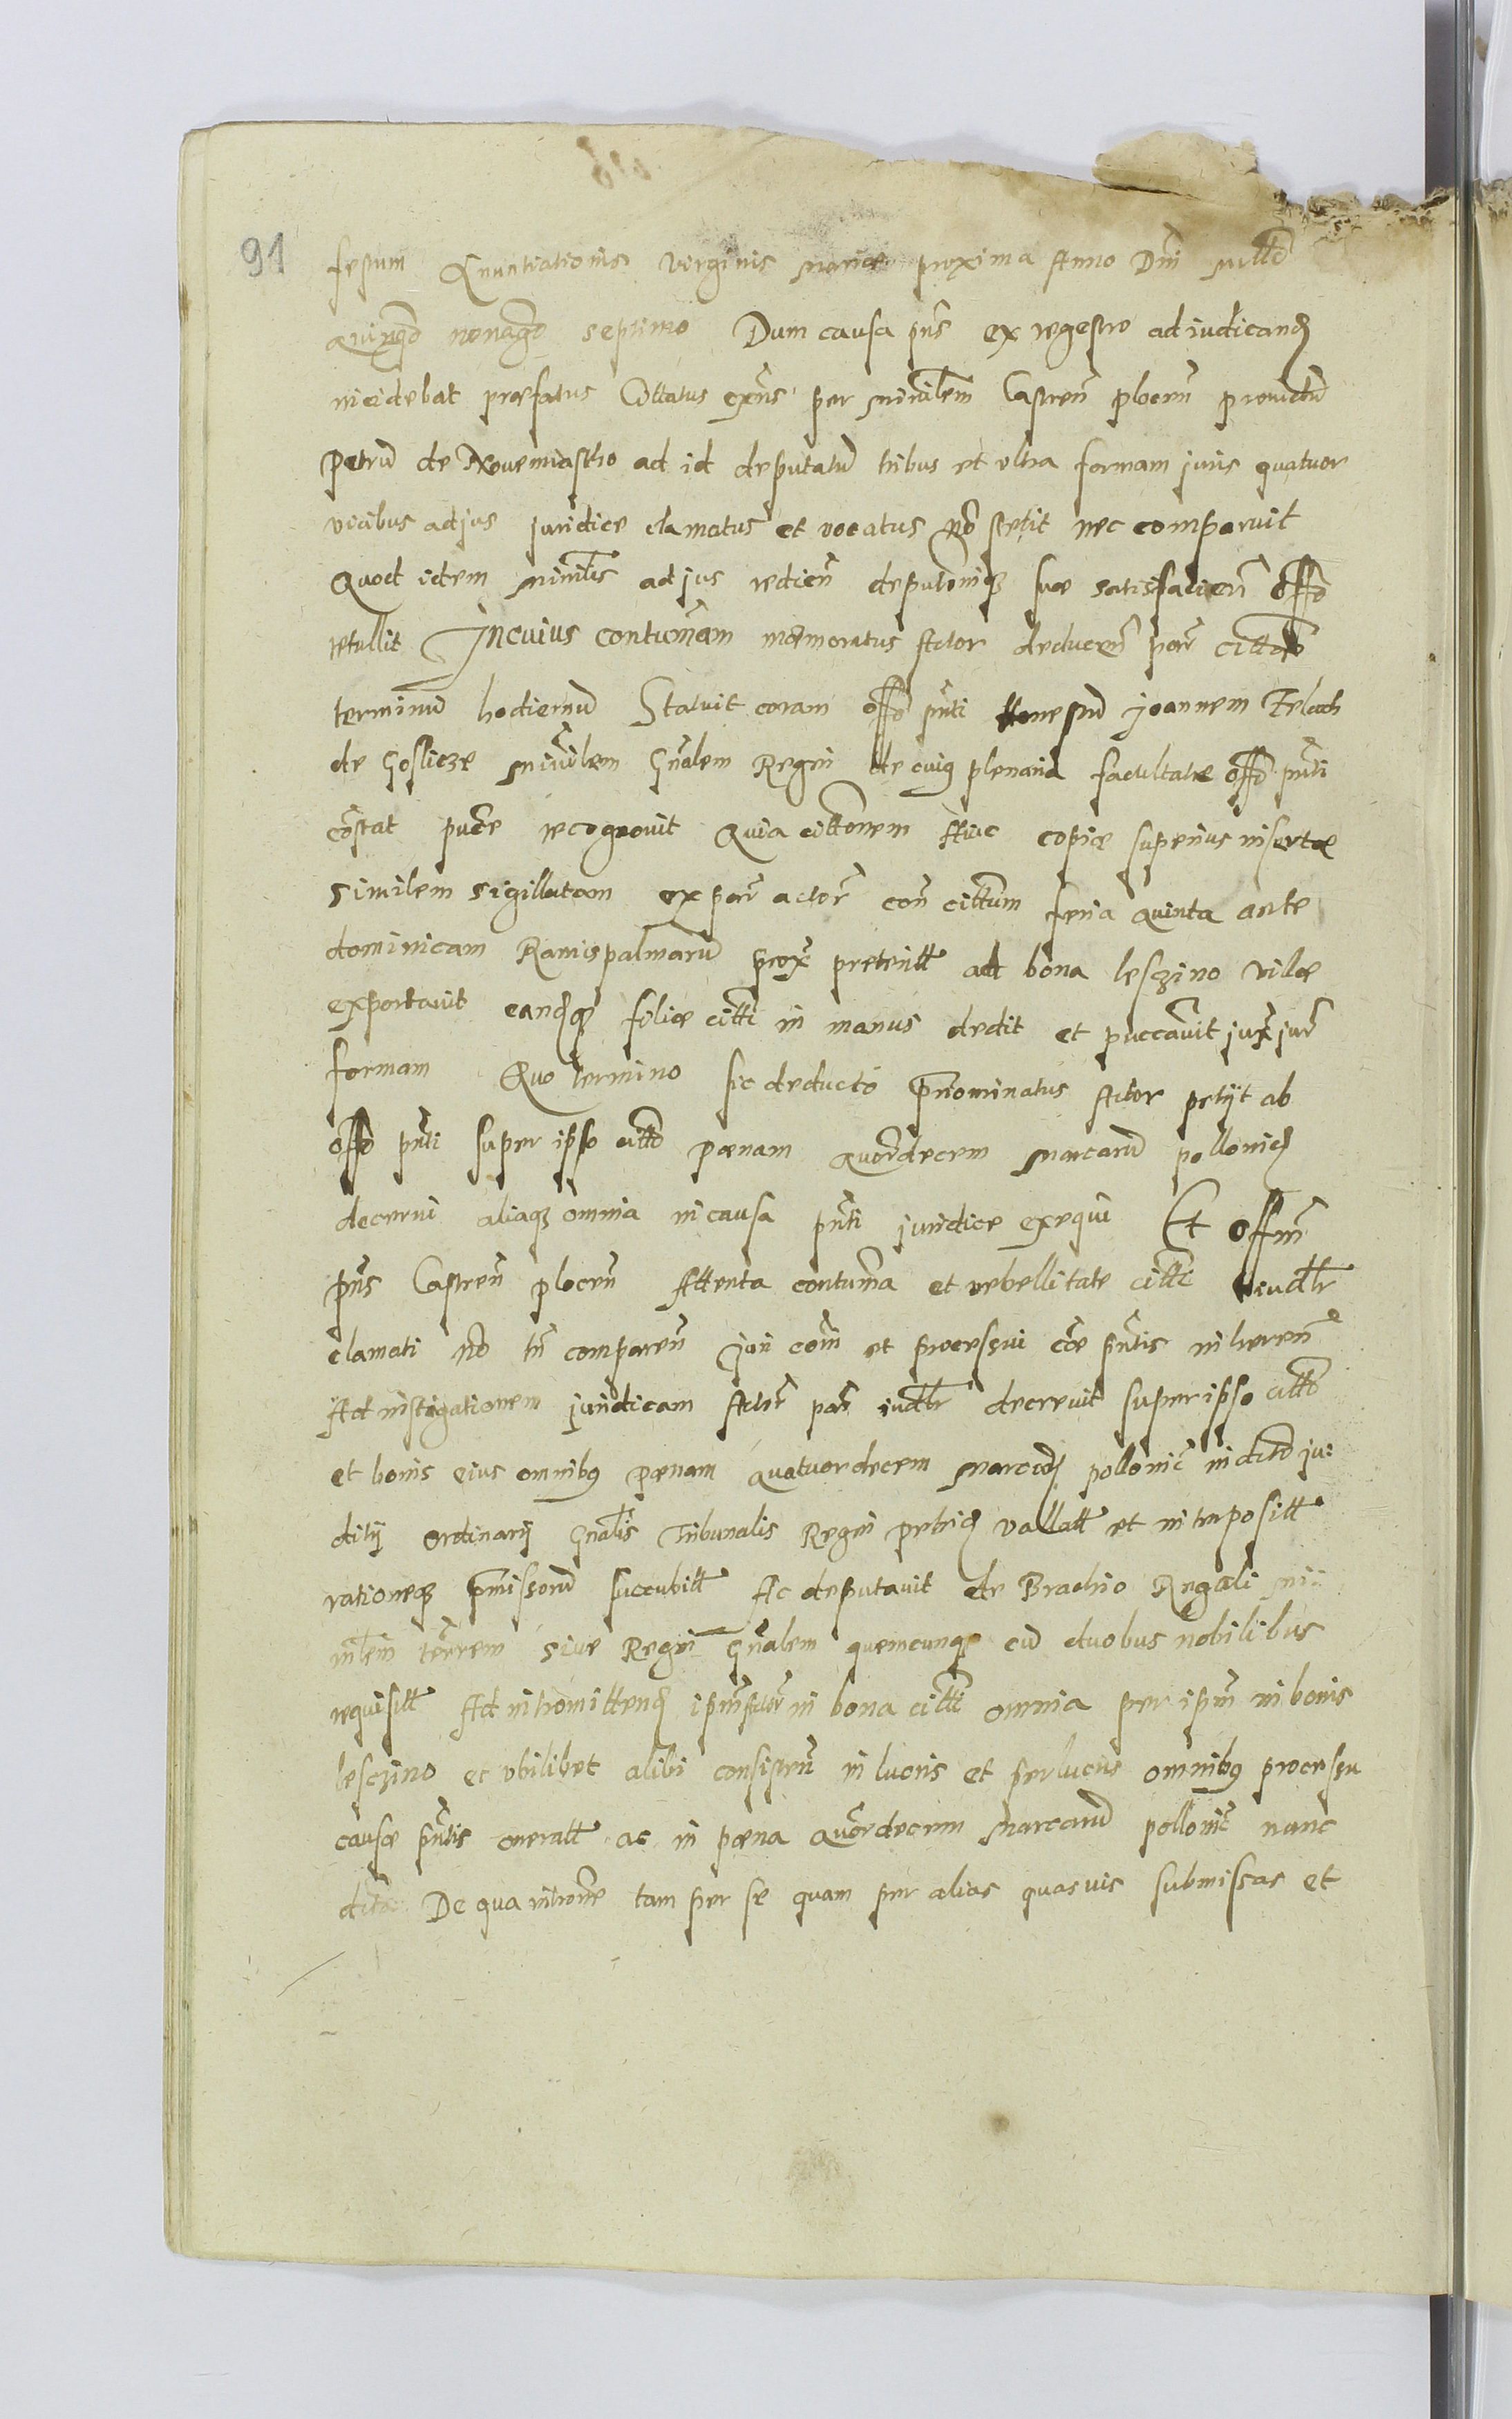 91
festum Anuntiationis Virginis mariae proxima Anno Dni millo
quingo nonago septimo Dum causa pns ex regestro ad iudicand
incidebat praefatus Cittatus exns per minrlem Castren plocen prouidu
petru de Nouemiastho ad id deputatu tribus et vltra formam juris quatuor
vicibus ad jus juridice clamatus et vocatus no stetit nec comparuit
Quod idem minrlis ad jus redien deputoniq suae satisfacien offo
retullit In cuius contumam memoratus Actor deducen par citta
terminu hodiernu Statuit coram offo pnti Honestu Joannem Felach
de Goslicze minrlem Gnalem Regni de cuiq plenaria facultate offo pnti
constat puce recognouit Quia cittonem Huic copiae superius insertae
similem sigillatam ex par actor con cittum feria quinta ante
dominicam Ramispalmaru prox preteritt ad bona leszino villae
exportauit eandq filiae citti in manus dedit et puccauit jux jur
formam Quo termino sic deducto pnominatus Actor petijt ab
offo pnti super ipso citto poenam quordecem marcaru pollonicd
decerni aliaq omnia in causa pnti juridice exequi Et offm
pns Castren plocen Attenta contuma et rebellitate citti judlr
clamati no tn comparen Juri com et processui cae pntis inheren
Ad instigationem juridicam Actor par judlr decreuit super ipso citto
et bonis eius omnibq poenam quatuordecem marcard pollonic in dicto ju:
ditij ordinarij Gnalis Tribunalis Regni petric vallatt et interposittt
rationeq pmissoru succubitt Ac deputauit de Brachio Regali mi:
nrlem terrem siue Regni Gnalem quemcunq cu duobus nobilibus
requisitt Ad intromittend ipm Actor in bona citti omnia per ipm in bonis
leszino et vbilibet alibi consisten in lucris et perlucris omnibq processu
causae pntis oneratt ac in poena quordecem marcaru pollonic nunc
dicta De qua introne tam per se quam per alias quasuis submissas et